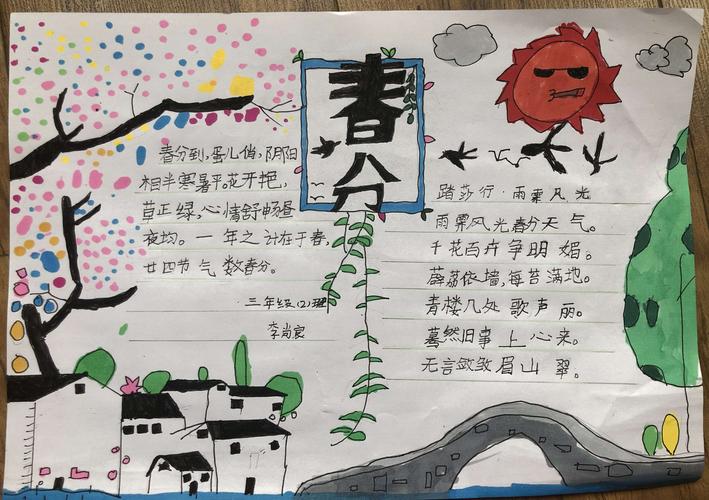 春分
春分到,蛋儿俏,阴阳
相半寒暑平。花开艳,
草正绿,心情舒畅昼
夜均。一年之计在于春,
廿四节气数春分。
三年级(2)班
李尚
踏莎行·雨霁风光
雨霁风光春分天气。
千花百卉争明媚。
薜荔依墙,莓苔满地。
青楼几处歌声丽。
蓦然旧事上心来。
无言敛皱眉山翠。